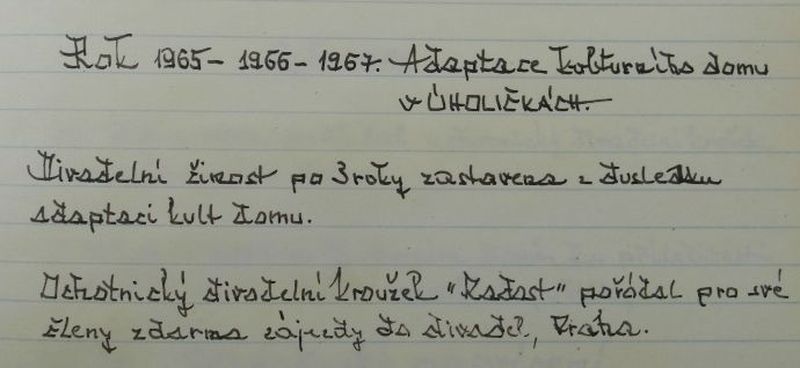 Rok 1965 - 1966 - 1967. Adaptace kulturního domu
v ÚHOLIČKÁCH.
Divadelní živost po 3 roky zastavena z dusledku
adaptaci kult domu.
Ochotnický divadelní kroužek "Radost" pořádal pro své
členy zdarma zájezdy do divadel, Praha.